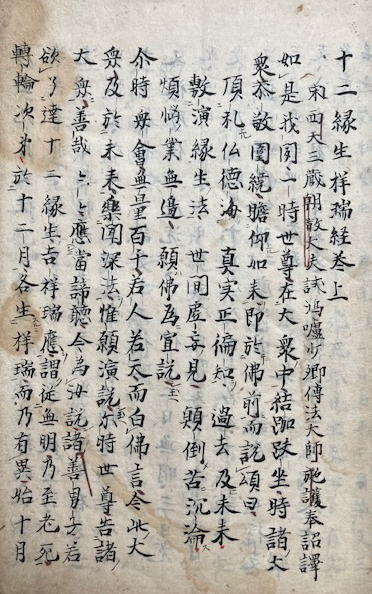 十二縁生祥瑞経巻上
宋西天三蔵朝散大夫試鴻臚少卿傳法大師施護奉詔譯
如是我聞一時世尊在大衆中結跏趺坐時諸大
衆恭敬圍繞瞻仰如来即於佛前而説頌曰
頂礼仏徳海　真実正徧知　過去及未来
敷演縁生法　世間虚妄見　顛倒苦沉淪
煩悩業無邊　願佛為宣説
尒時衆會無量百千若人若天而白佛言今此大
衆及於未来樂聞深法惟願演説尒時世尊告諸
大衆善哉々々應當諦聴今為汝説諸善男子若
欲了達十二縁生吉祥瑞應謂従無明乃至老死
轉輪次第於十二月各生祥瑞而乃有異始十月